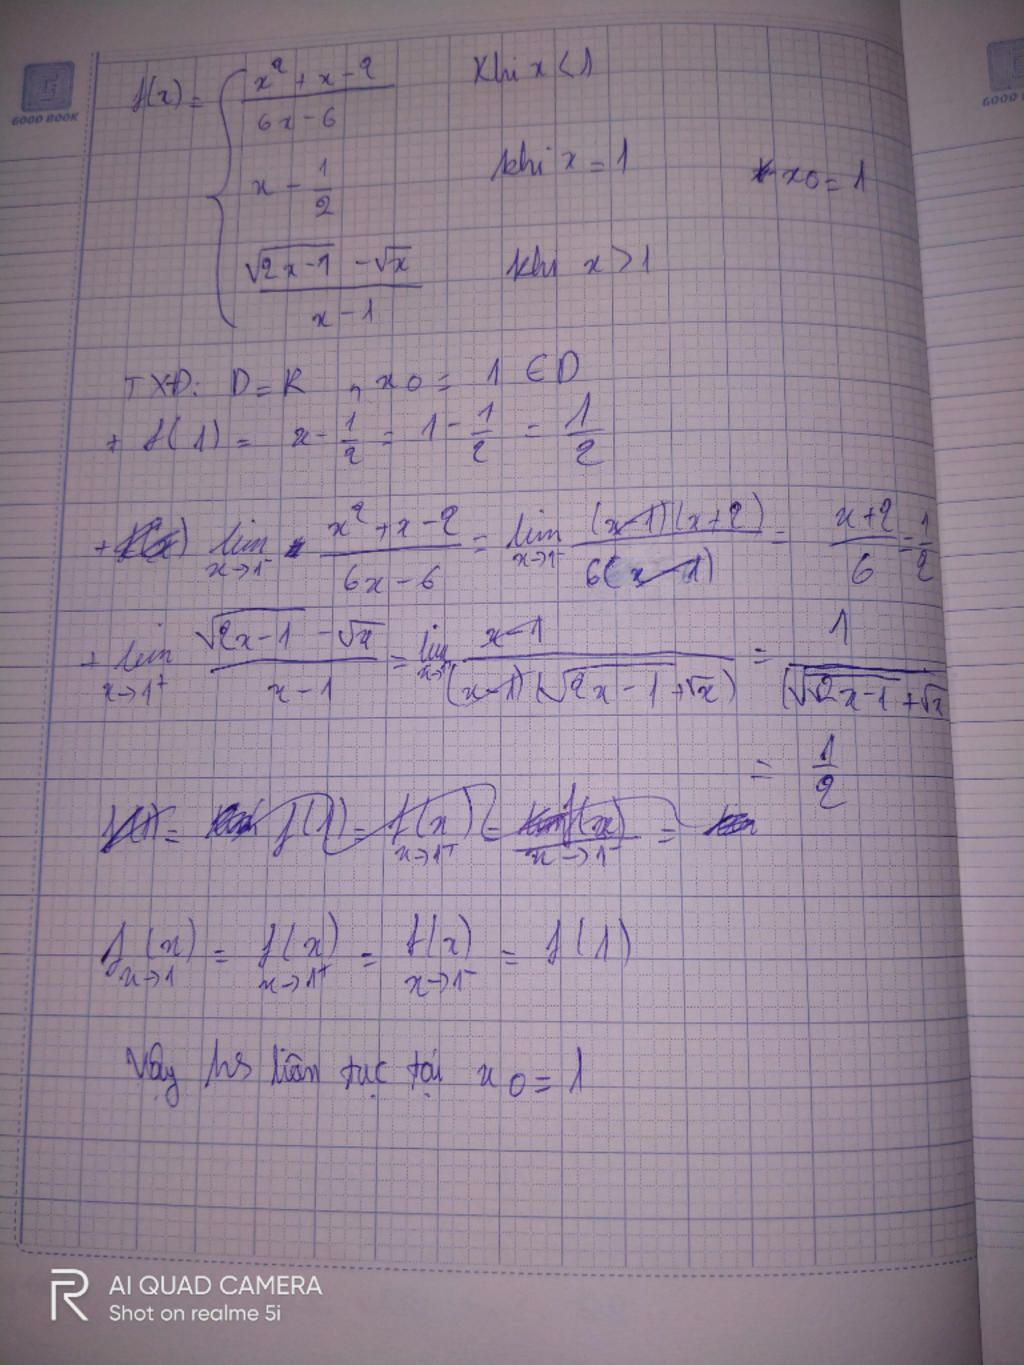 GOOD BOOK
GOOD BOOK
f(x) = { (x² + x - 2)/(6x - 6) Khi x < 1
x - 1/2 khi x = 1 x0 = 1
(√(2x-1) - √x)/(x - 1) khi x > 1
TXĐ: D = R , x0 = 1 ∈ D
+ f(1) = x - 1/2 = 1 - 1/2 = 1/2
+ lim x→1⁻ (x² + x - 2)/(6x - 6) = lim x→1⁻ ((x-1)(x+2))/(6(x-1)) = (x+2)/6 = 1/2
+ lim x→1⁺ (√(2x-1) - √x)/(x - 1) = lim x→1⁺ (x-1)/((x-1)(√(2x-1) + √x)) = 1/(√(2x-1) + √x
= 1/2
f(1) = f(x) x→1⁺ = f(x) x→1⁻ =
f(x) x→1 = f(x) x→1⁺ = f(x) x→1⁻ = f(1)
Vậy hs liên tục tại x0 = 1
AI QUAD CAMERA
Shot on realme 5i